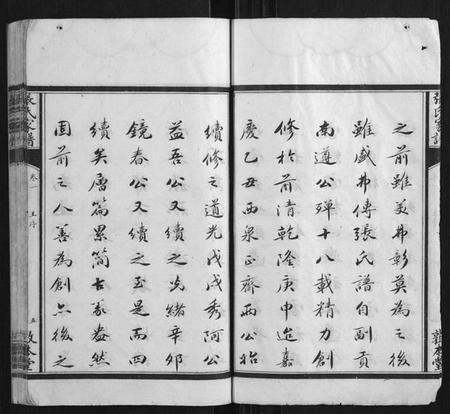 之前雖美弗彰莫為之後
雖盛弗傳張氏譜自副貢
南遵公殫十八載精力創
修於前清乾隆庚申迨嘉
慶乙丑西泉正齋兩公始
續修之道光戊戌秀阿公
益吾公又續之光緒辛卯
鏡春公又續之至是而四
續矣層篇累簡古彖盎然
固前之人善為創亦後之
張氏家譜
卷一
序
五
堂
張氏家譜
堂